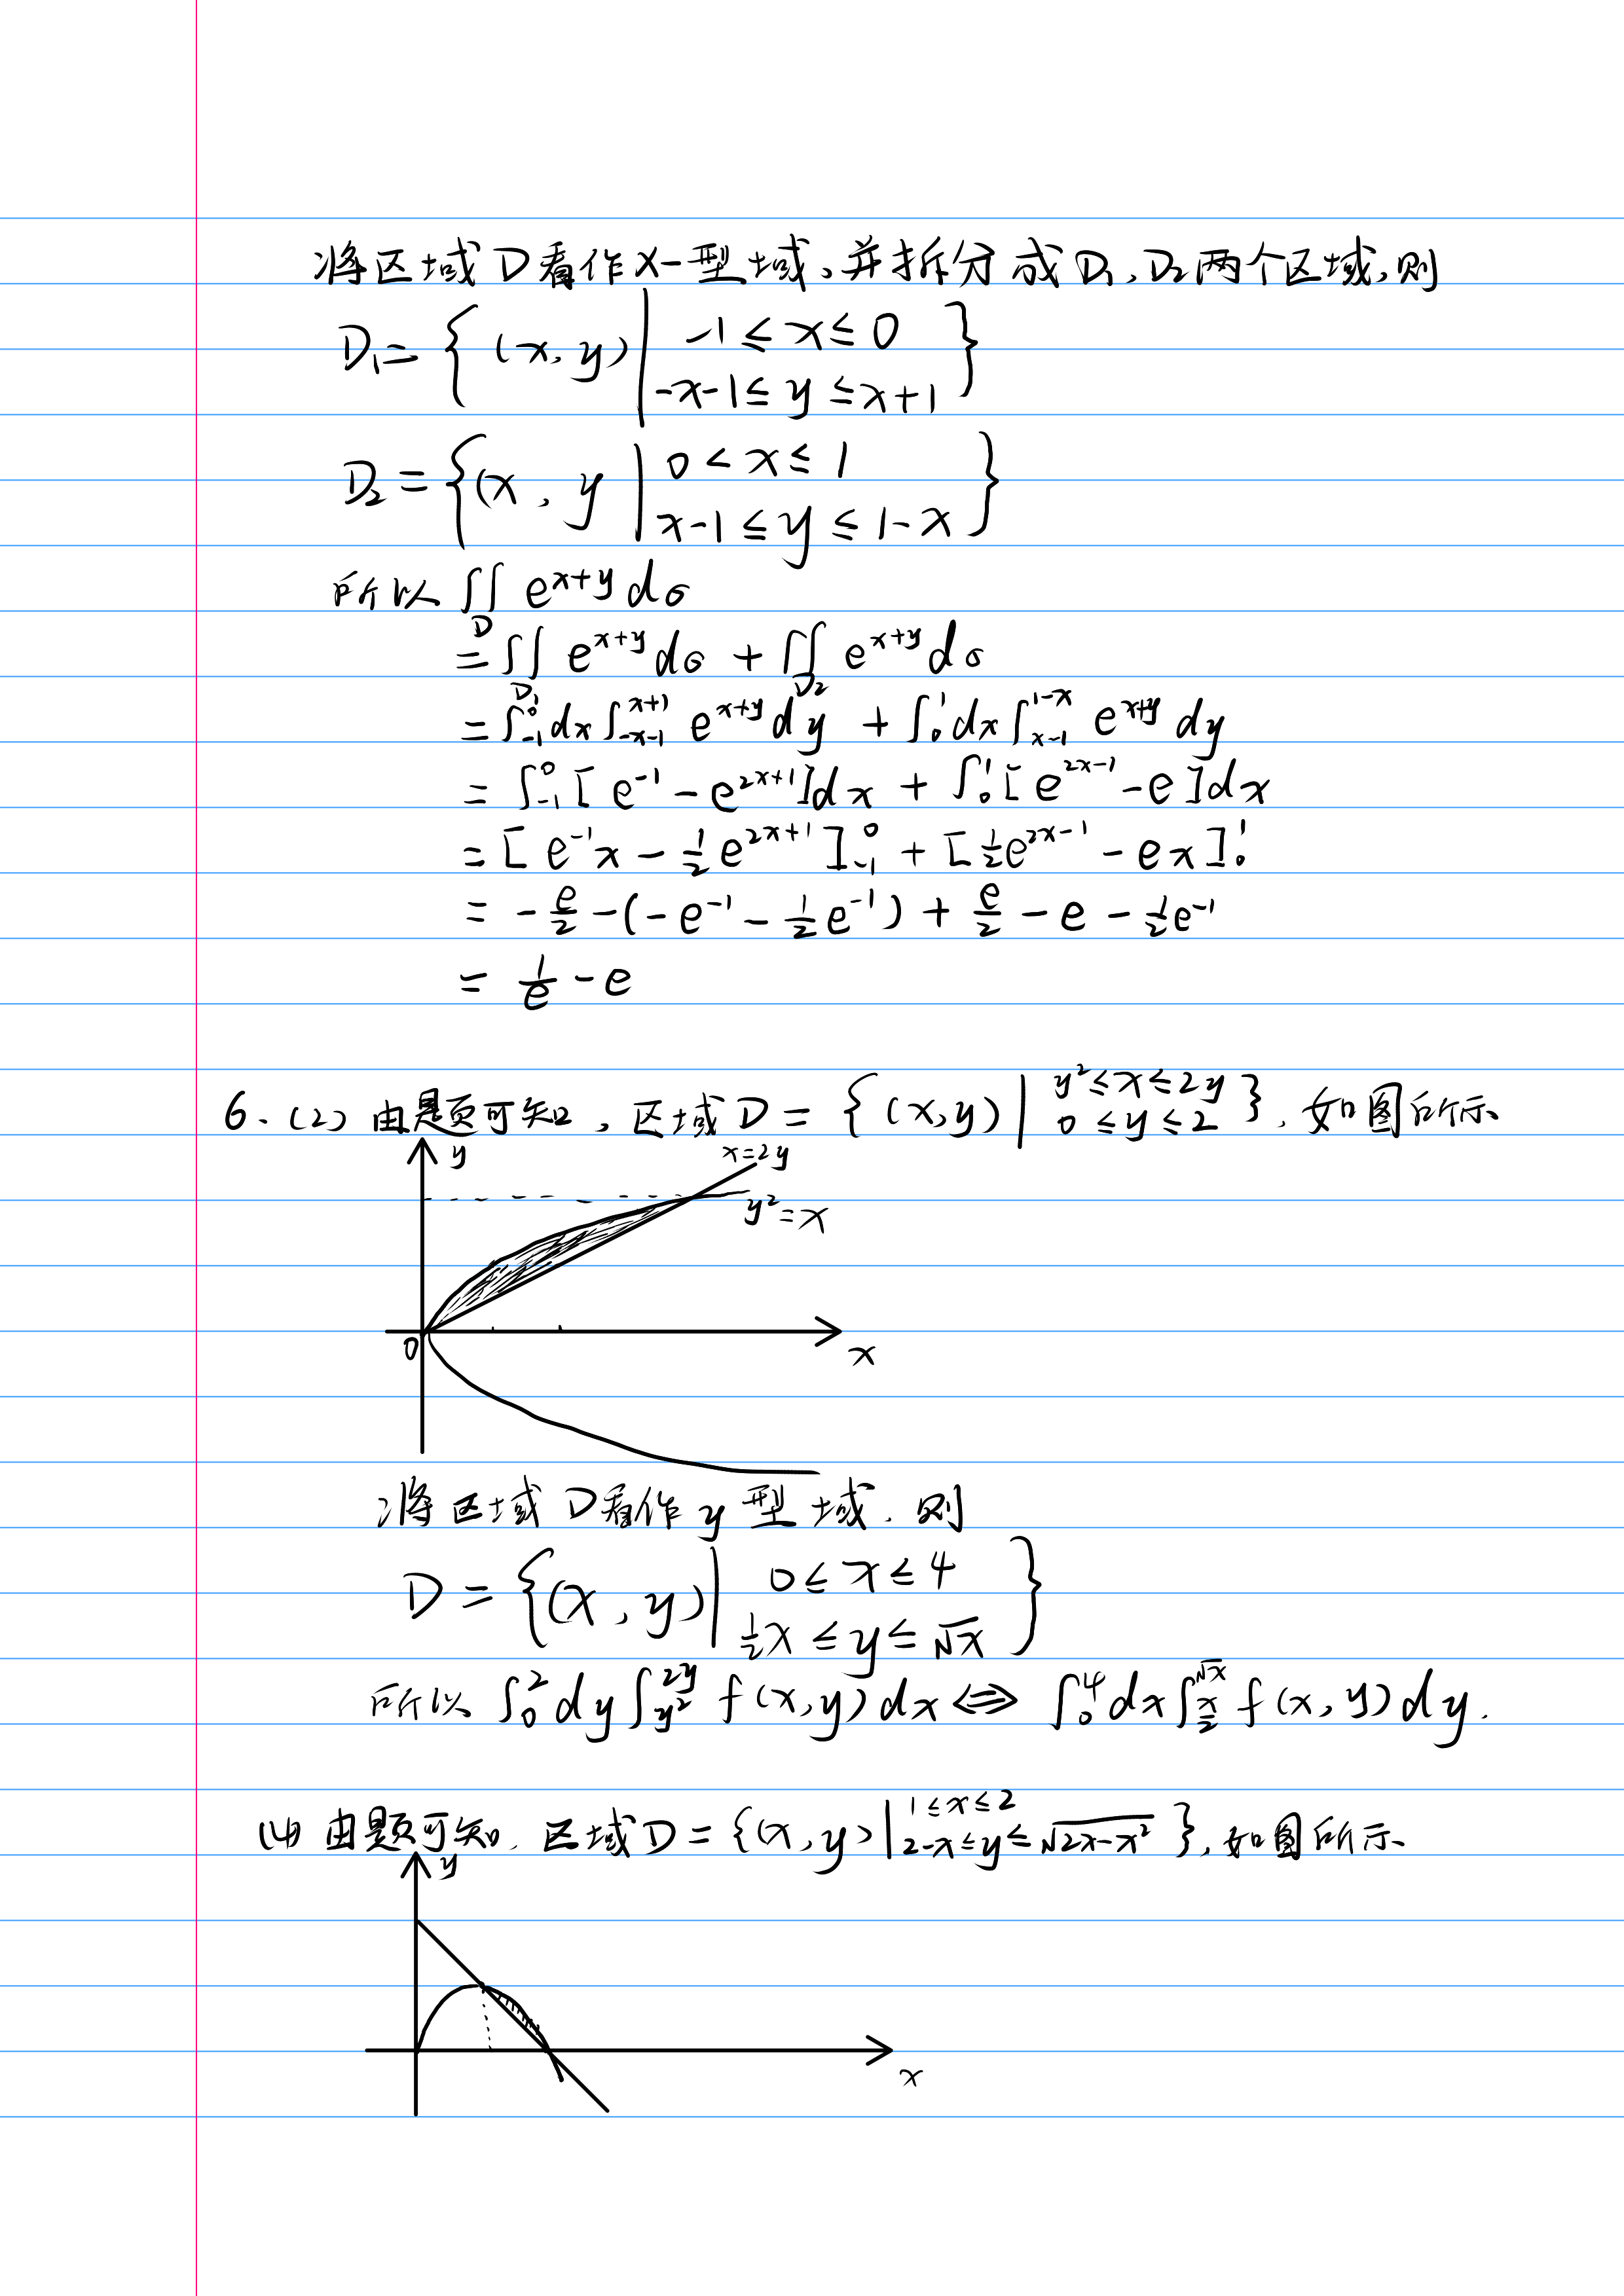 将区域D看作X-型域,并拆分成D₁,D₂两个区域,则
D₁={(x,y)|-1≤x≤0
-x-1≤y≤x+1}
D₂={(x,y|0<x≤1
x-1≤y≤1-x}
所以∬_D e^{x+y}dσ
=∬_{D₁} e^{x+y}dσ+∬_{D₂} e^{x+y}dσ
=∫_{-1}^{0}dx∫_{-x-1}^{x+1} e^{x+y}dy+∫_0^1dx∫_{x-1}^{1-x} e^{x+y}dy
=∫_{-1}^{0}[e^{-1}-e^{2x+1}]dx+∫_0^1[e^{2x-1}-e]dx
=[e^{-1}x-½e^{2x+1}]_{-1}^{0}+[½e^{2x-1}-ex]_0^1
=-e/2-(-e^{-1}-½e^{-1})+e/2-e-½e^{-1}
=1/e-e
6.(2)由题可知,区域D={(x,y)|y²≤x≤2y
0≤y≤2},如图所示、
y
x=2y
y²=x
0
x
将区域D看作y型域.则
D={(x,y)|0≤x≤4
½x≤y≤√x}
所以∫_0^2dy∫_{y²}^{2y} f(x,y)dx⇔∫_0^4dx∫_{x/2}^{√x} f(x,y)dy.
(4)由题可知.区域D={(x,y)|1≤x≤2
2-x≤y≤√(2x-x²)},如图所示、
y
x